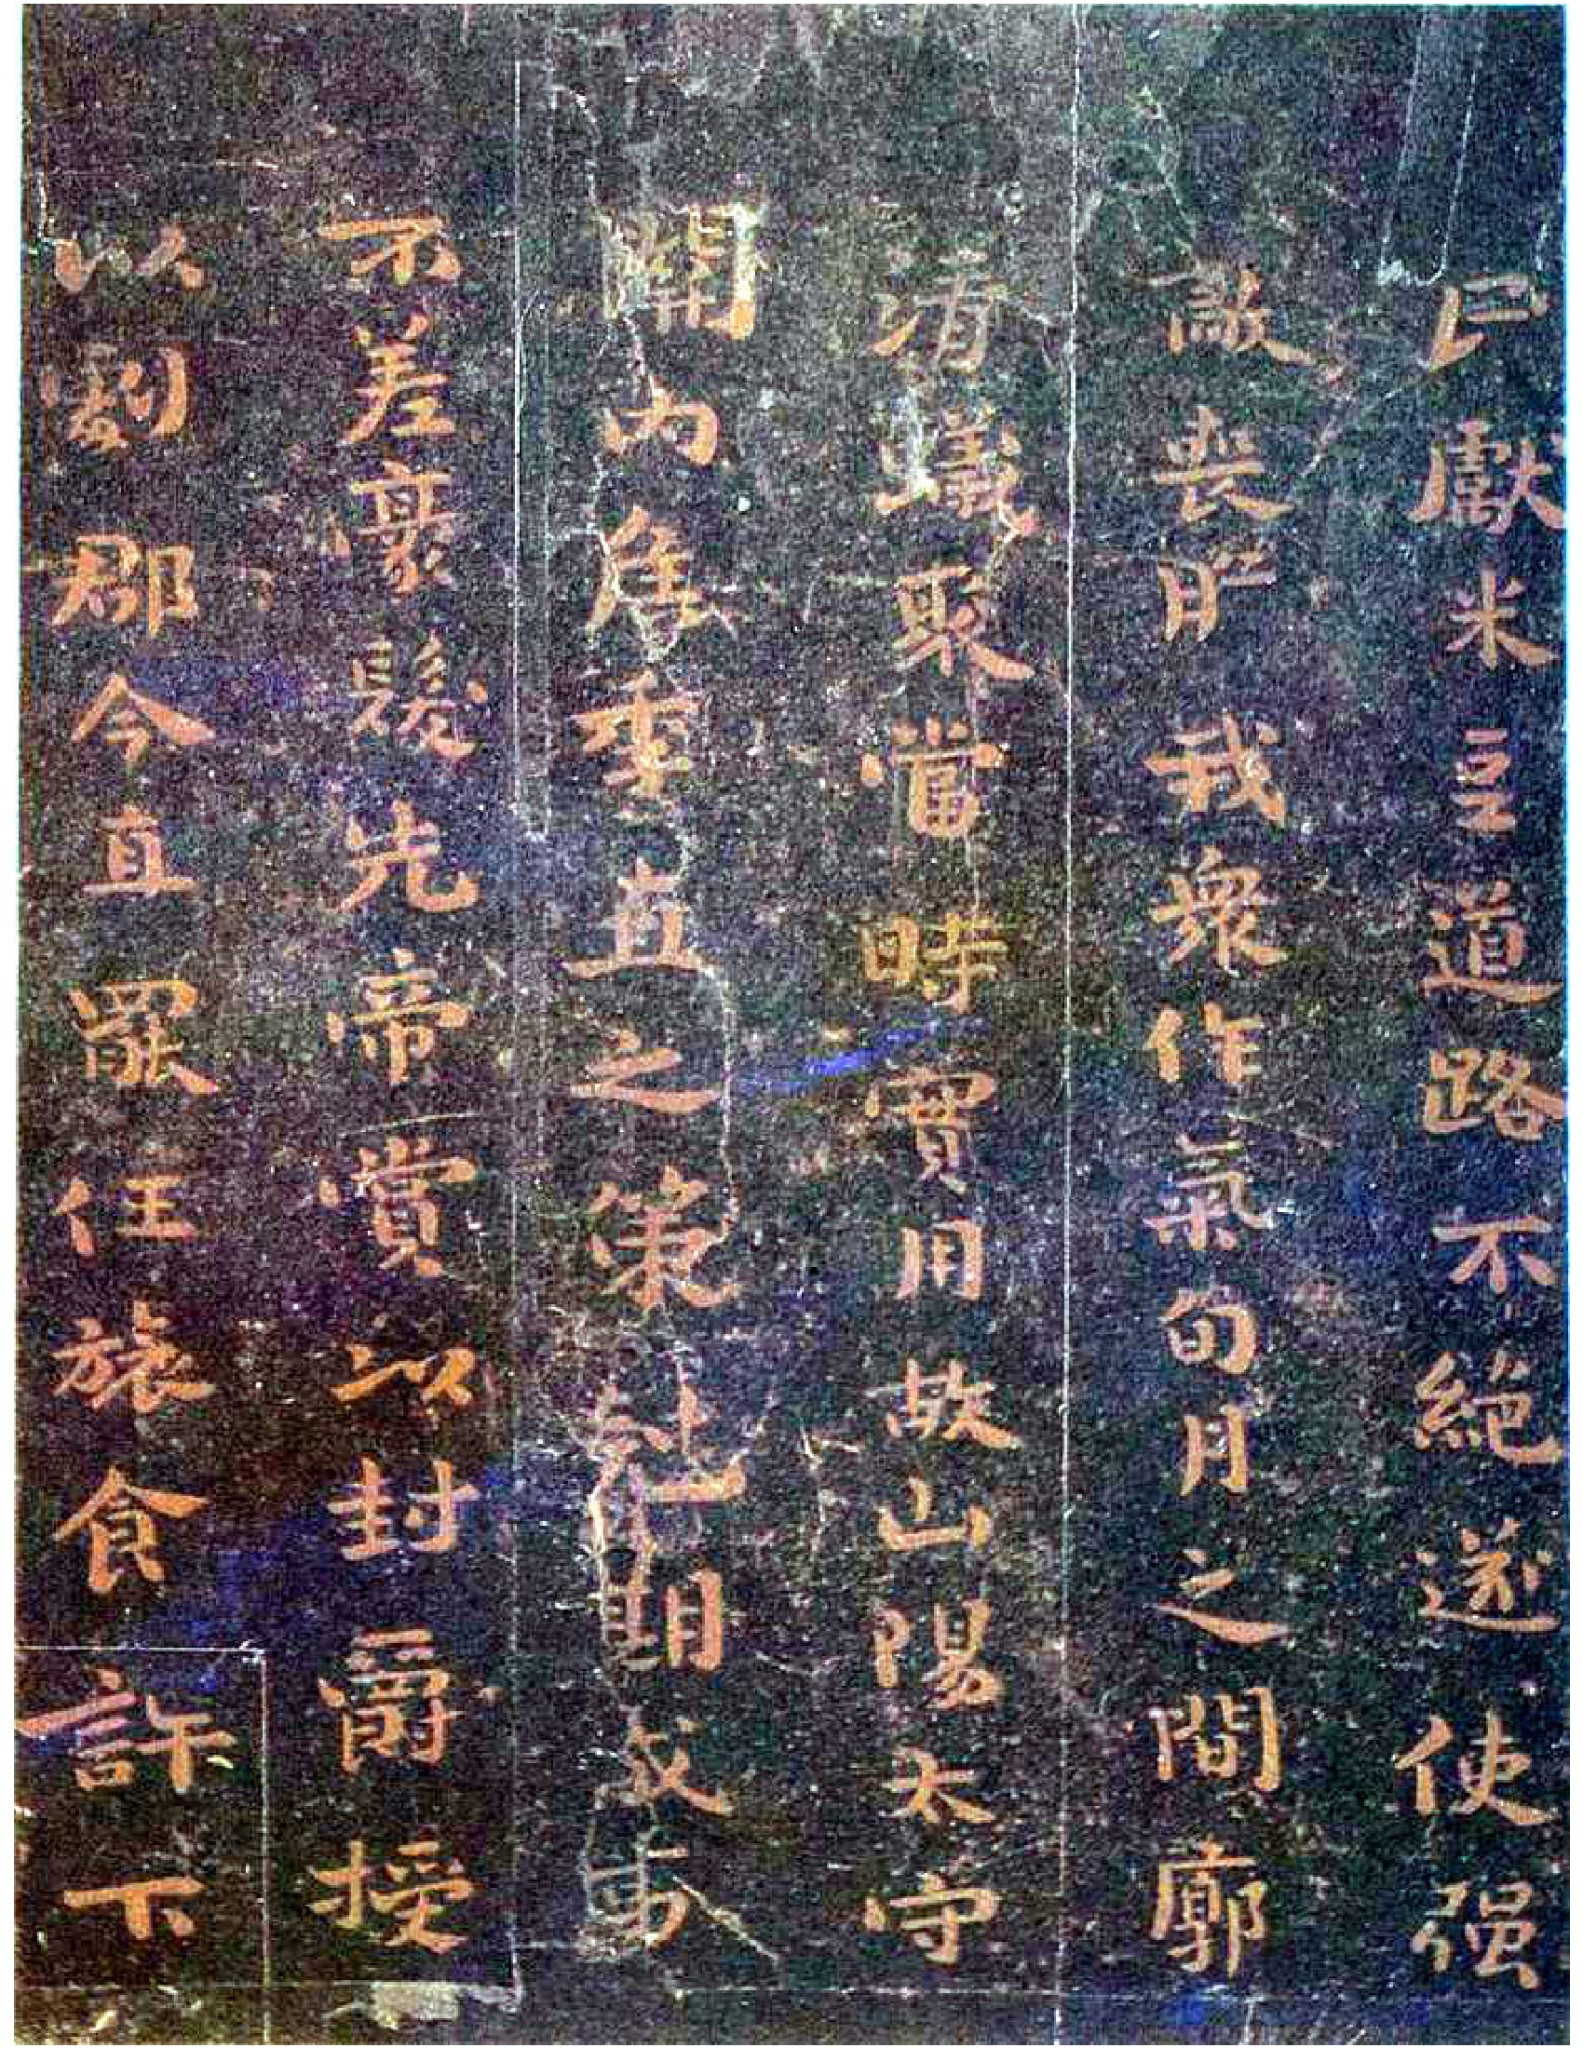 尸獻米豆道路不絕遂使强
敵喪膽我衆作氣旬月之閒廓
清蟻聚當時實用故山陽太守
關內侯季直之策剋期成事
不差豪髮先帝賞以封爵授
以劇郡今直罷任旅食許下